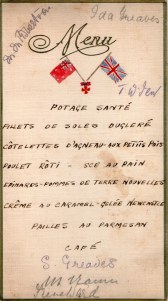 Ida Greaves
Menu
POTAGE SANTÉ
FILETS DE SOLES DUGLERÉ
CÔTELETTES D'AGNEAU-AUX PETITS POIS
POULET RÔTI - SCE AU PAIN
EPINARDS-POMMES DE TERRE NOUVELLES
CRÈME AU CARAMEL-GELÉE NEWCASTLE
PAILLES AU PARMESAN
CAFÉ
S. Greaves